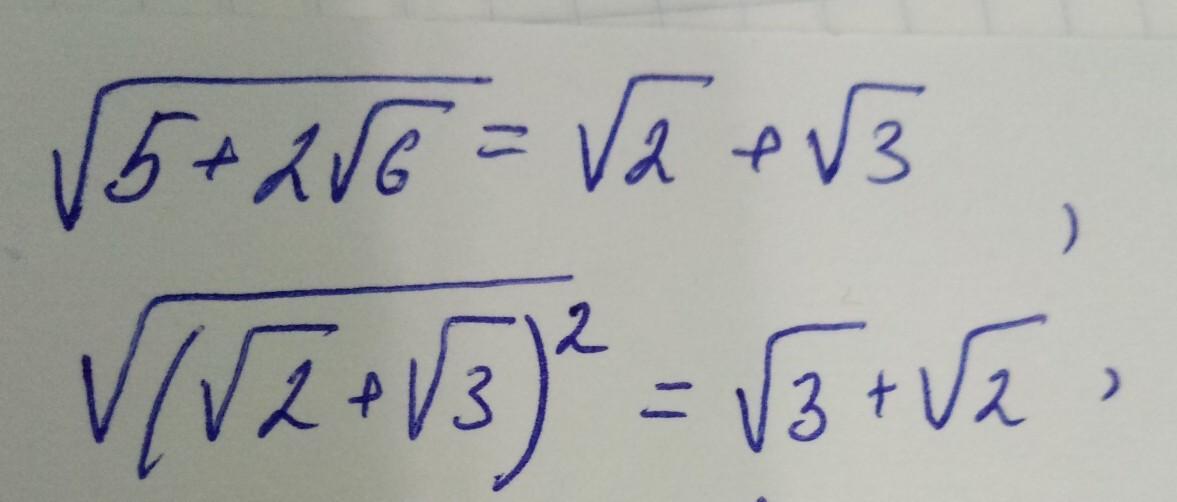 √(5+2√6) = √2 + √3 ,
√((√2+√3)²) = √3 + √2 ,